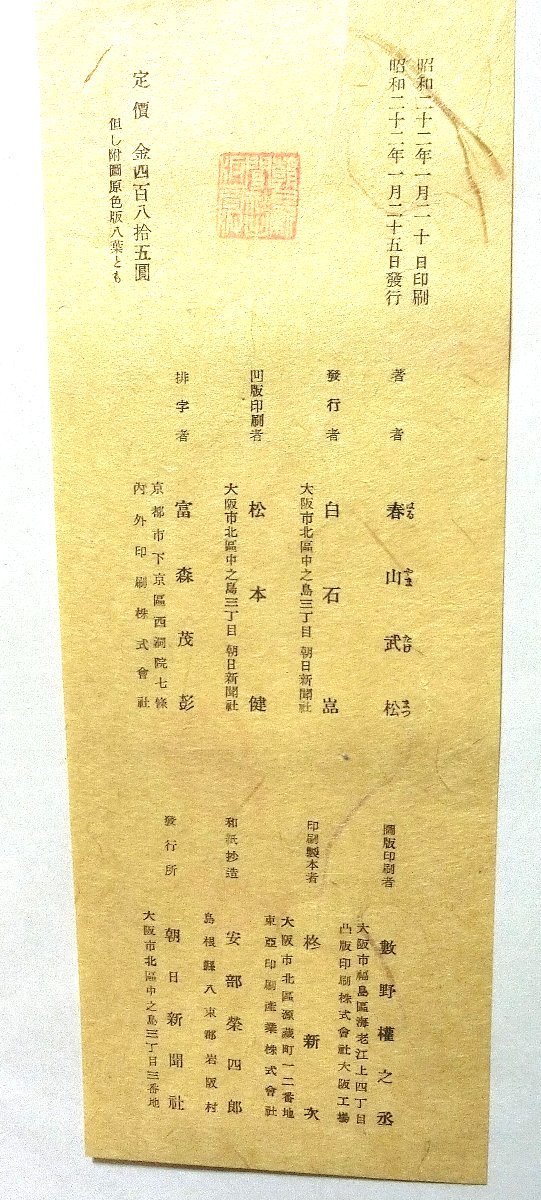 昭和二十二年一月二十日印刷
昭和二十二年一月二十五日發行
定價 金四百八拾五圓
但し附圖原色版八葉とも
著者 春山武松
はるやまたけまつ
發行者 白石
大阪市北區中之島三丁目 朝日新聞社
凹版印刷者 松本健
大阪市北區中之島三丁目 朝日新聞社
排字者 富森茂彭
京都市下京區西洞院七條
內外印刷株式會社
圖版印刷者 數野權之丞
大阪市福島區海老江上四丁目
凸版印刷株式會社大阪工場
印刷製本者 柊新次
大阪市北區源藏町一二番地
東亞印刷產業株式會社
和紙抄造 安部榮四郎
島根縣八束郡岩阪村
發行所 朝日新聞社
大阪市北區中之島三丁目三番地